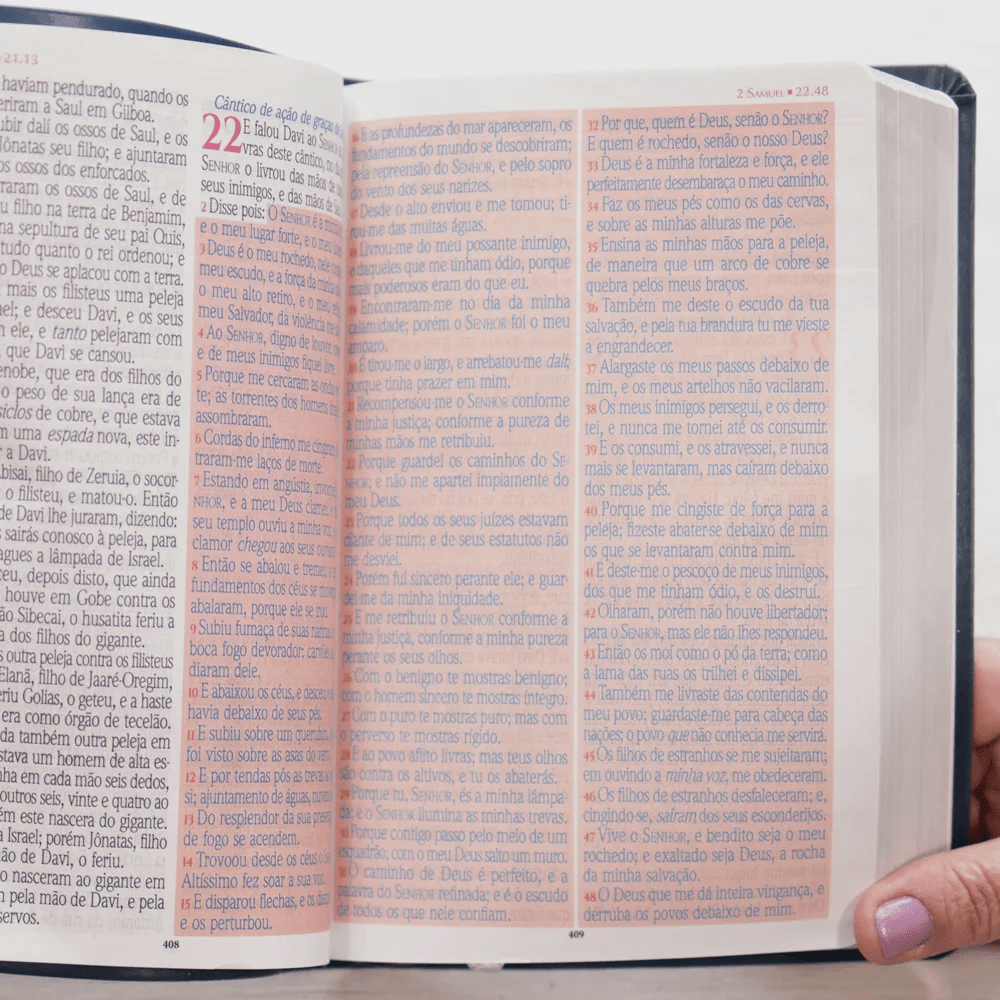 21.13
haviam pendurado, quando os
feriram a Saul em Gilboa.
ubir dali os ossos de Saul, e os
Jônatas seu filho; e ajuntaram
os ossos dos enforcados.
raram os ossos de Saul, e de
u filho na terra de Benjamim,
na sepultura de seu pai Quis,
tudo quanto o rei ordenou; e
o Deus se aplacou com a terra.
mais os filisteus uma peleja
ael; e desceu Davi, e os seus
n ele, e tanto pelejaram com
, que Davi se cansou.
enobe, que era dos filhos do
o peso de sua lança era de
siclos de cobre, e que estava
m uma espada nova, este in-
r a Davi.
Abisai, filho de Zeruia, o socor-
o filisteu, e matou-o. Então
de Davi lhe juraram, dizendo:
s sairás conosco à peleja, para
agues a lâmpada de Israel.
ceu, depois disto, que ainda
houve em Gobe contra os
ão Sibecai, o husatita feriu a
a dos filhos do gigante.
s outra peleja contra os filisteus
Elanã, filho de Jaaré-Oregim,
eriu Golias, o geteu, e a haste
era como órgão de tecelão.
da também outra peleja em
stava um homem de alta es-
nha em cada mão seis dedos,
outros seis, vinte e quatro ao
ém este nascera do gigante.
a Israel; porém Jônatas, filho
ão de Davi, o feriu.
o nasceram ao gigante em
n pela mão de Davi, e pela
servos.
Cântico de ação de graças de
22 E falou Davi ao SENHOR
vras deste cântico, no
SENHOR o livrou das mãos de
seus inimigos, e das mãos de
2 Disse pois: O SENHOR é a
e o meu lugar forte, e o meu
3 Deus é o meu rochedo, nele
meu escudo, e a força da minha
o meu alto retiro, e o meu
meu Salvador, da violência me
4 Ao SENHOR, digno de louvor,
e de meus inimigos fiquei
5 Porque me cercaram as
te; as torrentes dos homens
assombraram.
6 Cordas do inferno me cingiram
traram-me laços de morte.
7 Estando em angústia,
NHOR, e a meu Deus clamei;
seu templo ouviu a minha voz,
clamor chegou aos seus ouvidos
8 Então se abalou e tremeu
fundamentos dos céus se
abalaram, porque ele se irou.
9 Subiu fumaça de suas
boca fogo devorador; carvões
diaram dele.
10 E abaixou os céus, e desceu
havia debaixo de seus pés.
11 E subiu sobre um querubim,
foi visto sobre as asas do vento.
12 E por tendas pôs as trevas
si; ajuntamento de águas,
13 Do resplendor da sua
de fogo se acendem.
14 Trovoou desde os céus o
Altíssimo fez soar a sua voz.
15 E disparou flechas, e os
e os perturbou.
408
2 SAMUEL ▪ 22.48
16 E as profundezas do mar apareceram, os
fundamentos do mundo se descobriram;
pela repreensão do SENHOR, e pelo sopro
do vento dos seus narizes.
17 Desde o alto enviou e me tomou; ti-
rou-me das muitas águas.
18 Livrou-me do meu possante inimigo,
e daqueles que me tinham ódio, porque
mais poderosos eram do que eu.
19 Encontraram-me no dia da minha
calamidade; porém o SENHOR foi o meu
amparo.
20 E tirou-me o largo, e arrebatou-me dali;
porque tinha prazer em mim.
21 Recompensou-me o SENHOR conforme
a minha justiça; conforme a pureza de
minhas mãos me retribuiu.
22 Porque guardei os caminhos do SE-
NHOR; e não me apartei impiamente do
meu Deus.
23 Porque todos os seus juízes estavam
diante de mim; e de seus estatutos não
me desviei.
24 Porém fui sincero perante ele; e guar-
dei-me da minha iniquidade.
25 E me retribuiu o SENHOR conforme a
minha justiça, conforme a minha pureza
perante os seus olhos.
26 Com o benigno te mostras benigno;
com o homem sincero te mostras íntegro.
27 Com o puro te mostras puro; mas com
o perverso te mostras rígido.
28 E ao povo aflito livras; mas teus olhos
são contra os altivos, e tu os abaterás.
29 Porque tu, SENHOR, és a minha lâmpa-
da; e o SENHOR ilumina as minhas trevas.
30 Porque contigo passo pelo meio de um
esquadrão; com o meu Deus salto um muro.
31 O caminho de Deus é perfeito, e a
palavra do SENHOR refinada; e é o escudo
de todos os que nele confiam.
32 Por que, quem é Deus, senão o SENHOR?
E quem é rochedo, senão o nosso Deus?
33 Deus é a minha fortaleza e força, e ele
perfeitamente desembaraça o meu caminho.
34 Faz os meus pés como os das cervas,
e sobre as minhas alturas me põe.
35 Ensina as minhas mãos para a peleja,
de maneira que um arco de cobre se
quebra pelos meus braços.
36 Também me deste o escudo da tua
salvação, e pela tua brandura tu me vieste
a engrandecer.
37 Alargaste os meus passos debaixo de
mim, e os meus artelhos não vacilaram.
38 Os meus inimigos persegui, e os derro-
tei, e nunca me tornei até os consumir.
39 E os consumi, e os atravessei, e nunca
mais se levantaram, mas caíram debaixo
dos meus pés.
40 Porque me cingiste de força para a
peleja; fizeste abater-se debaixo de mim
os que se levantaram contra mim.
41 E deste-me o pescoço de meus inimigos,
dos que me tinham ódio, e os destruí.
42 Olharam, porém não houve libertador;
para o SENHOR, mas ele não lhes respondeu.
43 Então os moí como o pó da terra; como
a lama das ruas os trilhei e dissipei.
44 Também me livraste das contendas do
meu povo; guardaste-me para cabeça das
nações; o povo que não conhecia me servirá.
45 Os filhos de estranhos se me sujeitaram;
em ouvindo a minha voz, me obedeceram.
46 Os filhos de estranhos desfaleceram; e,
cingindo-se, saíram dos seus esconderijos.
47 Vive o SENHOR, e bendito seja o meu
rochedo; e exaltado seja Deus, a rocha
da minha salvação.
48 O Deus que me dá inteira vingança, e
derruba os povos debaixo de mim.
409